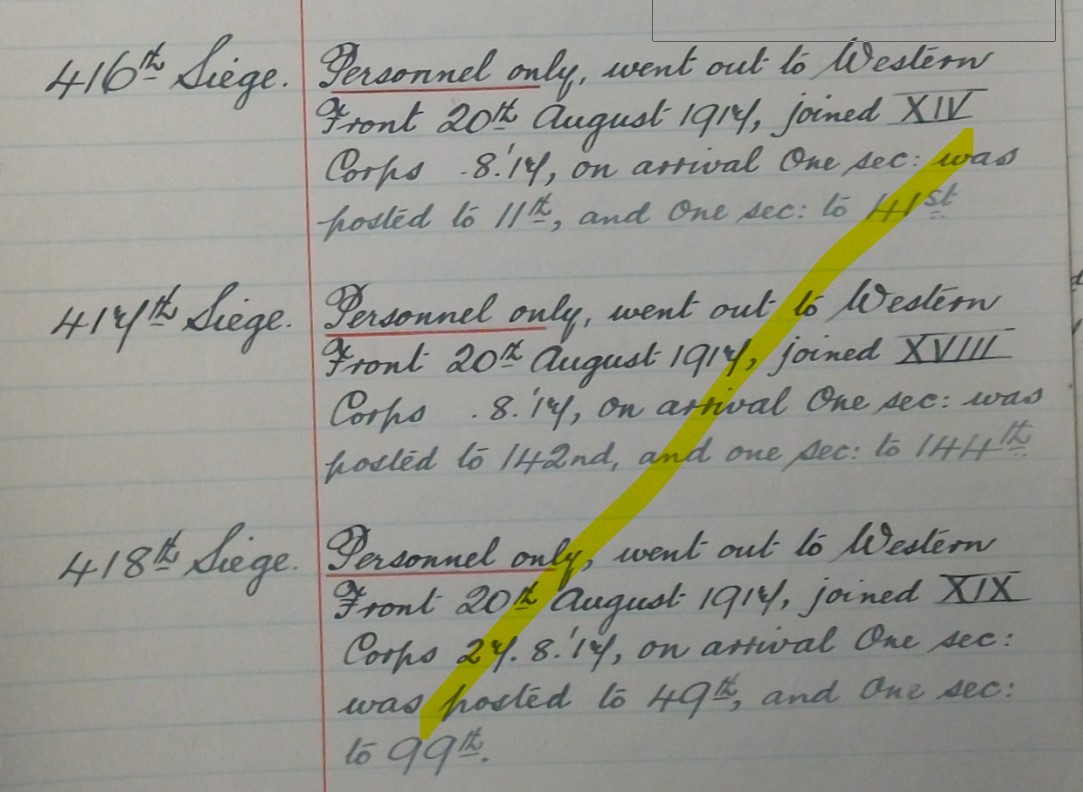 416th Siege. Personnel only, went out to Western
Front 20th August 1917, joined XIV
Corps .8.'17, on arrival One sec: was
posted to 11th, and One sec: to 41st
417th Siege. Personnel only, went out to Western
Front 20th August 1917, joined XVIII
Corps .8.'17, on arrival One sec: was
posted to 142nd, and one sec: to 144th
418th Siege. Personnel only, went out to Western
Front 20th August 1917, joined XIX
Corps 27.8.'17, on arrival One sec:
was posted to 49th, and One sec:
to 99th.